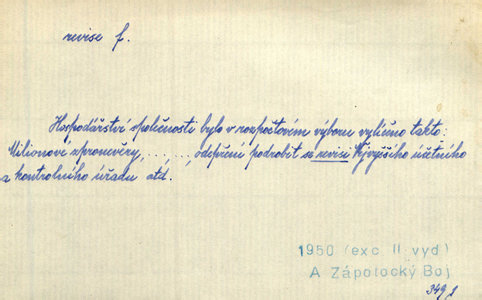 revise f.
Hospodářství společnosti bylo v rozpočtovém výboru vylíčeno takto:
Milionové zpronevěry, ..., ..., odepření podrobit se revisi Nejvyššího účetního
a kontrolního úřadu atd.
1950 (exc II. vyd)
A Zápotocký Boj
349,2